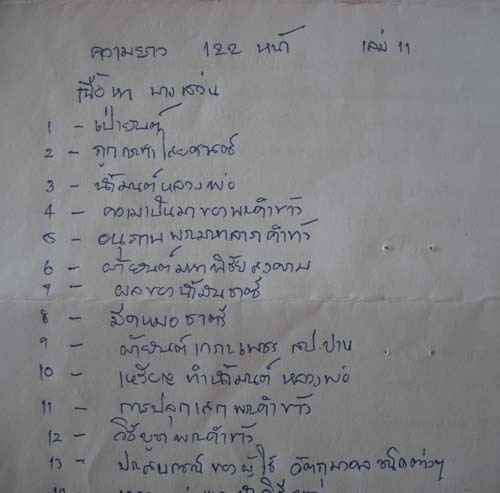 ความยาว 122 หน้า เล่ม 11
เนื้อหา บางส่วน
1 - เป่ายันต์
2 - ถูกกระทำไสยศาสตร์
3 - น้ำมนต์หลวงพ่อ
4 - ความเป็นมาของพระคำข้าว
5 - อนุภาพพระมหาลาภคำข้าว
6 - ผ้ายันต์มหาพิชัยสงคราม
7 - ผลของน้ำมันชาตรี
8 - มีดหมอชาตรี
9 - ผ้ายันต์เกราะเพชร
10 - เหรียญทำน้ำมนต์หลวงพ่อ
11 - การปลุกเสกพระคำข้าว
12 - วิธีบูชาพระคำข้าว
13 - ประสบการณ์ของผู้ใช้ วัตถุมงคลชนิดต่างๆ